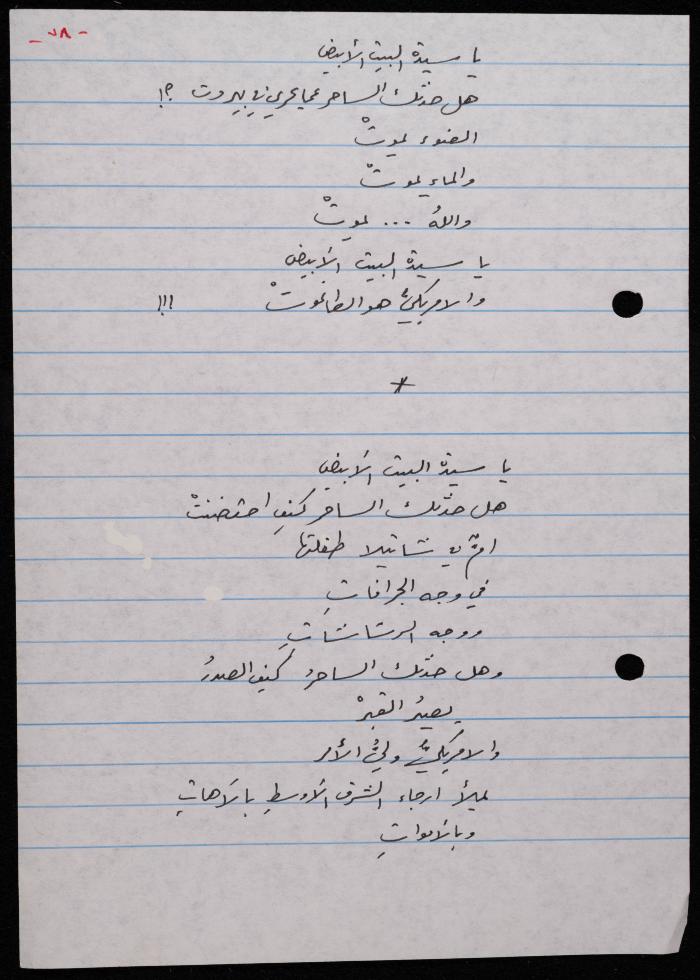 - ٧٨ -
يا سيدة البيت الأبيض
هل حدّثك الساحر عما يجري في بيروت ؟!
الضوء يموتْ
والماء يموتْ
واللهُ ... يموتْ
يا سيدة البيت الأبيض
والامريكيُّ هو الطاغوتْ !!!
*
يا سيدة البيت الأبيض
هل حدّثك الساحر كيف احتضنتْ
امٌّ في شاتيلا طفلتها
في وجه الجرافاتِ
ووجه الرشاشاتِ
وهل حدّثك الساحرُ كيف الصدرُ
يصيرُ القبرْ
والامريكيُّ وليُّ الأمر
يملأ ارجاء الشرق الأوسطِ بالآهاتِ
وبالأمواتِ